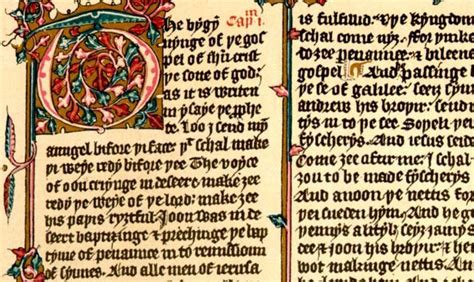 The bygyn
nynge of ye gos
pel of ihū crist
ye sone of god:
as it is writen
in ysaye ye pphe
te. Loo j send my
aungel bifore yi face yt schal make
yi weye redy bifore ye The voyce
of oon cryinge in deseert make zee
redy ye weye of ye lord; make zee
his papis ryztful Joon was in de
seert baptizinge & prechinge ye bap
tyme of penaunce in to remissioun
of synnes. And alle men of ierusa
Cap i.
is fulfild. & ye kyngdom
schal come nyz: forynke
to zee penaunce, & bileeue
gospel And passinge
ye see of galilee: seez symo
andrew his broyur. send
tys in to ye see Soyeli yei
fyscheris And ihesus seid
Come zee aftur me: I scha
zou to be maad fyscheris
And anoon ye nettis forsa
yei sueden hym. And he g
yennys a lityl: seyz jamys
zee & joon his broyur: & he
bot makinge nettis. And